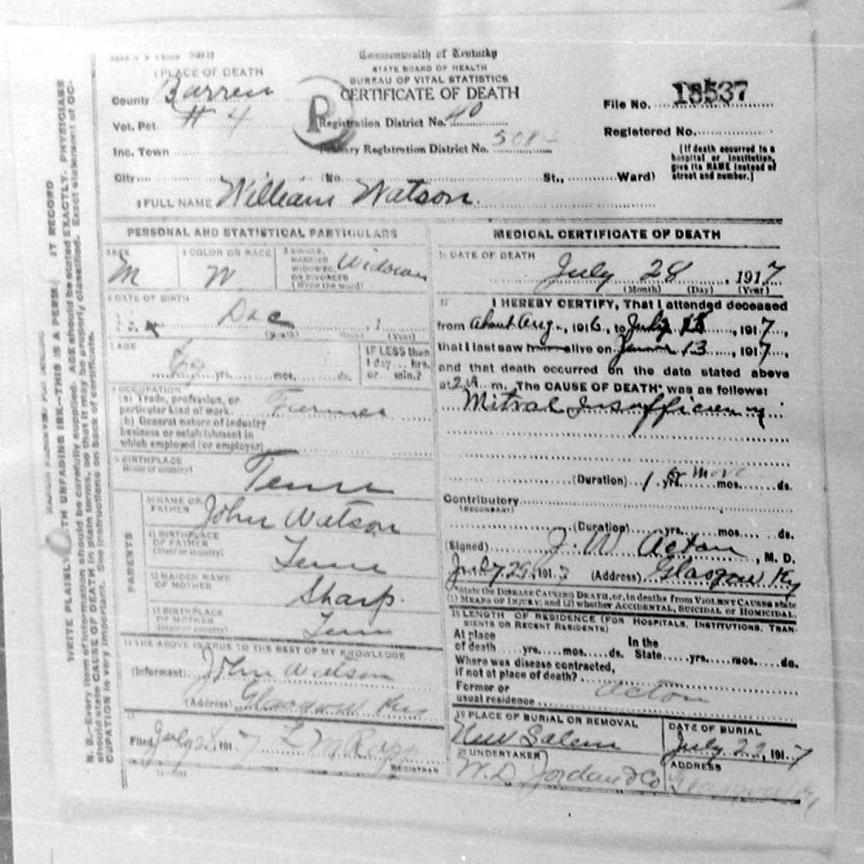 Commonwealth of Kentucky
STATE BOARD OF HEALTH
BUREAU OF VITAL STATISTICS
CERTIFICATE OF DEATH
1 PLACE OF DEATH
County Barren
Vot. Pct # 4
Inc. Town
City (No. St., Ward)
Registration District No. 40
Primary Registration District No.
File No. 18537
Registered No.
[If death occurred in a
hospital or institution,
give its NAME instead of
street and number.]
2 FULL NAME William Watson.
PERSONAL AND STATISTICAL PARTICULARS
3 SEX
M
4 COLOR OR RACE
W
5 SINGLE,
MARRIED
WIDOWED
OR DIVORCED
(Write the word)
6 DATE OF BIRTH
Dec
(Month) (Year)
7 AGE
yrs. mos. ds.
IF LESS than
1 day hrs.
or min.?
8 OCCUPATION
(a) Trade, profession, or
particular kind of work. Farmer
(b) General nature of industry
business or establishment in
which employed (or employer)
9 BIRTHPLACE
(State or country) Tenn
PARENTS
10 NAME OF
FATHER John Watson
11 BIRTHPLACE
OF FATHER
(State or country) Tenn
12 MAIDEN NAME
OF MOTHER Sharp.
13 BIRTHPLACE
OF MOTHER
(State or country) Tenn
14 THE ABOVE IS TRUE TO THE BEST OF MY KNOWLEDGE
(Informant) John Watson
(Address) Glasgow Ky
15
Filed July 28 1917
REGISTRAR
MEDICAL CERTIFICATE OF DEATH
16 DATE OF DEATH
July 28, 1917
(Month) (Day) (Year)
17 I HEREBY CERTIFY, That I attended deceased
from About Aug, 1916, to July, 1917,
that I last saw alive on 13, 1917,
and that death occurred on the date stated above
at 2 A. m. The CAUSE OF DEATH* was as follows:
Mitral Insufficiency
(Duration) 1 or more yrs. mos. ds.
Contributory
(SECONDARY)
(Duration) yrs. mos. ds.
(Signed) J. W. Acton, M. D.
July 29, 1917 (Address) Glasgow Ky
*State the DISEASE CAUSING DEATH, or, in deaths from VIOLENT CAUSES state
(1) MEANS OF INJURY; and (2) whether ACCIDENTAL, SUICIDAL or HOMICIDAL.
18 LENGTH OF RESIDENCE (FOR HOSPITALS, INSTITUTIONS, TRAN-
SIENTS OR RECENT RESIDENTS)
At place
of death yrs. mos. ds.
In the
State yrs. mos. ds.
Where was disease contracted,
if not at place of death?
Former or
usual residence Acton
19 PLACE OF BURIAL OR REMOVAL
New Salem
DATE OF BURIAL
July 29, 1917
20 UNDERTAKER
W. D. Jordan & Co
ADDRESS
Glasgow Ky
WRITE PLAINLY WITH UNFADING INK—THIS IS A PERM IT RECORD
N. B.—Every item of information should be carefully supplied. AGE should be stated EXACTLY. PHYSICIANS
should state CAUSE OF DEATH in plain terms, so that it may be properly classified. Exact statement of OC-
CUPATION is very important. See instructions on back of certificate.